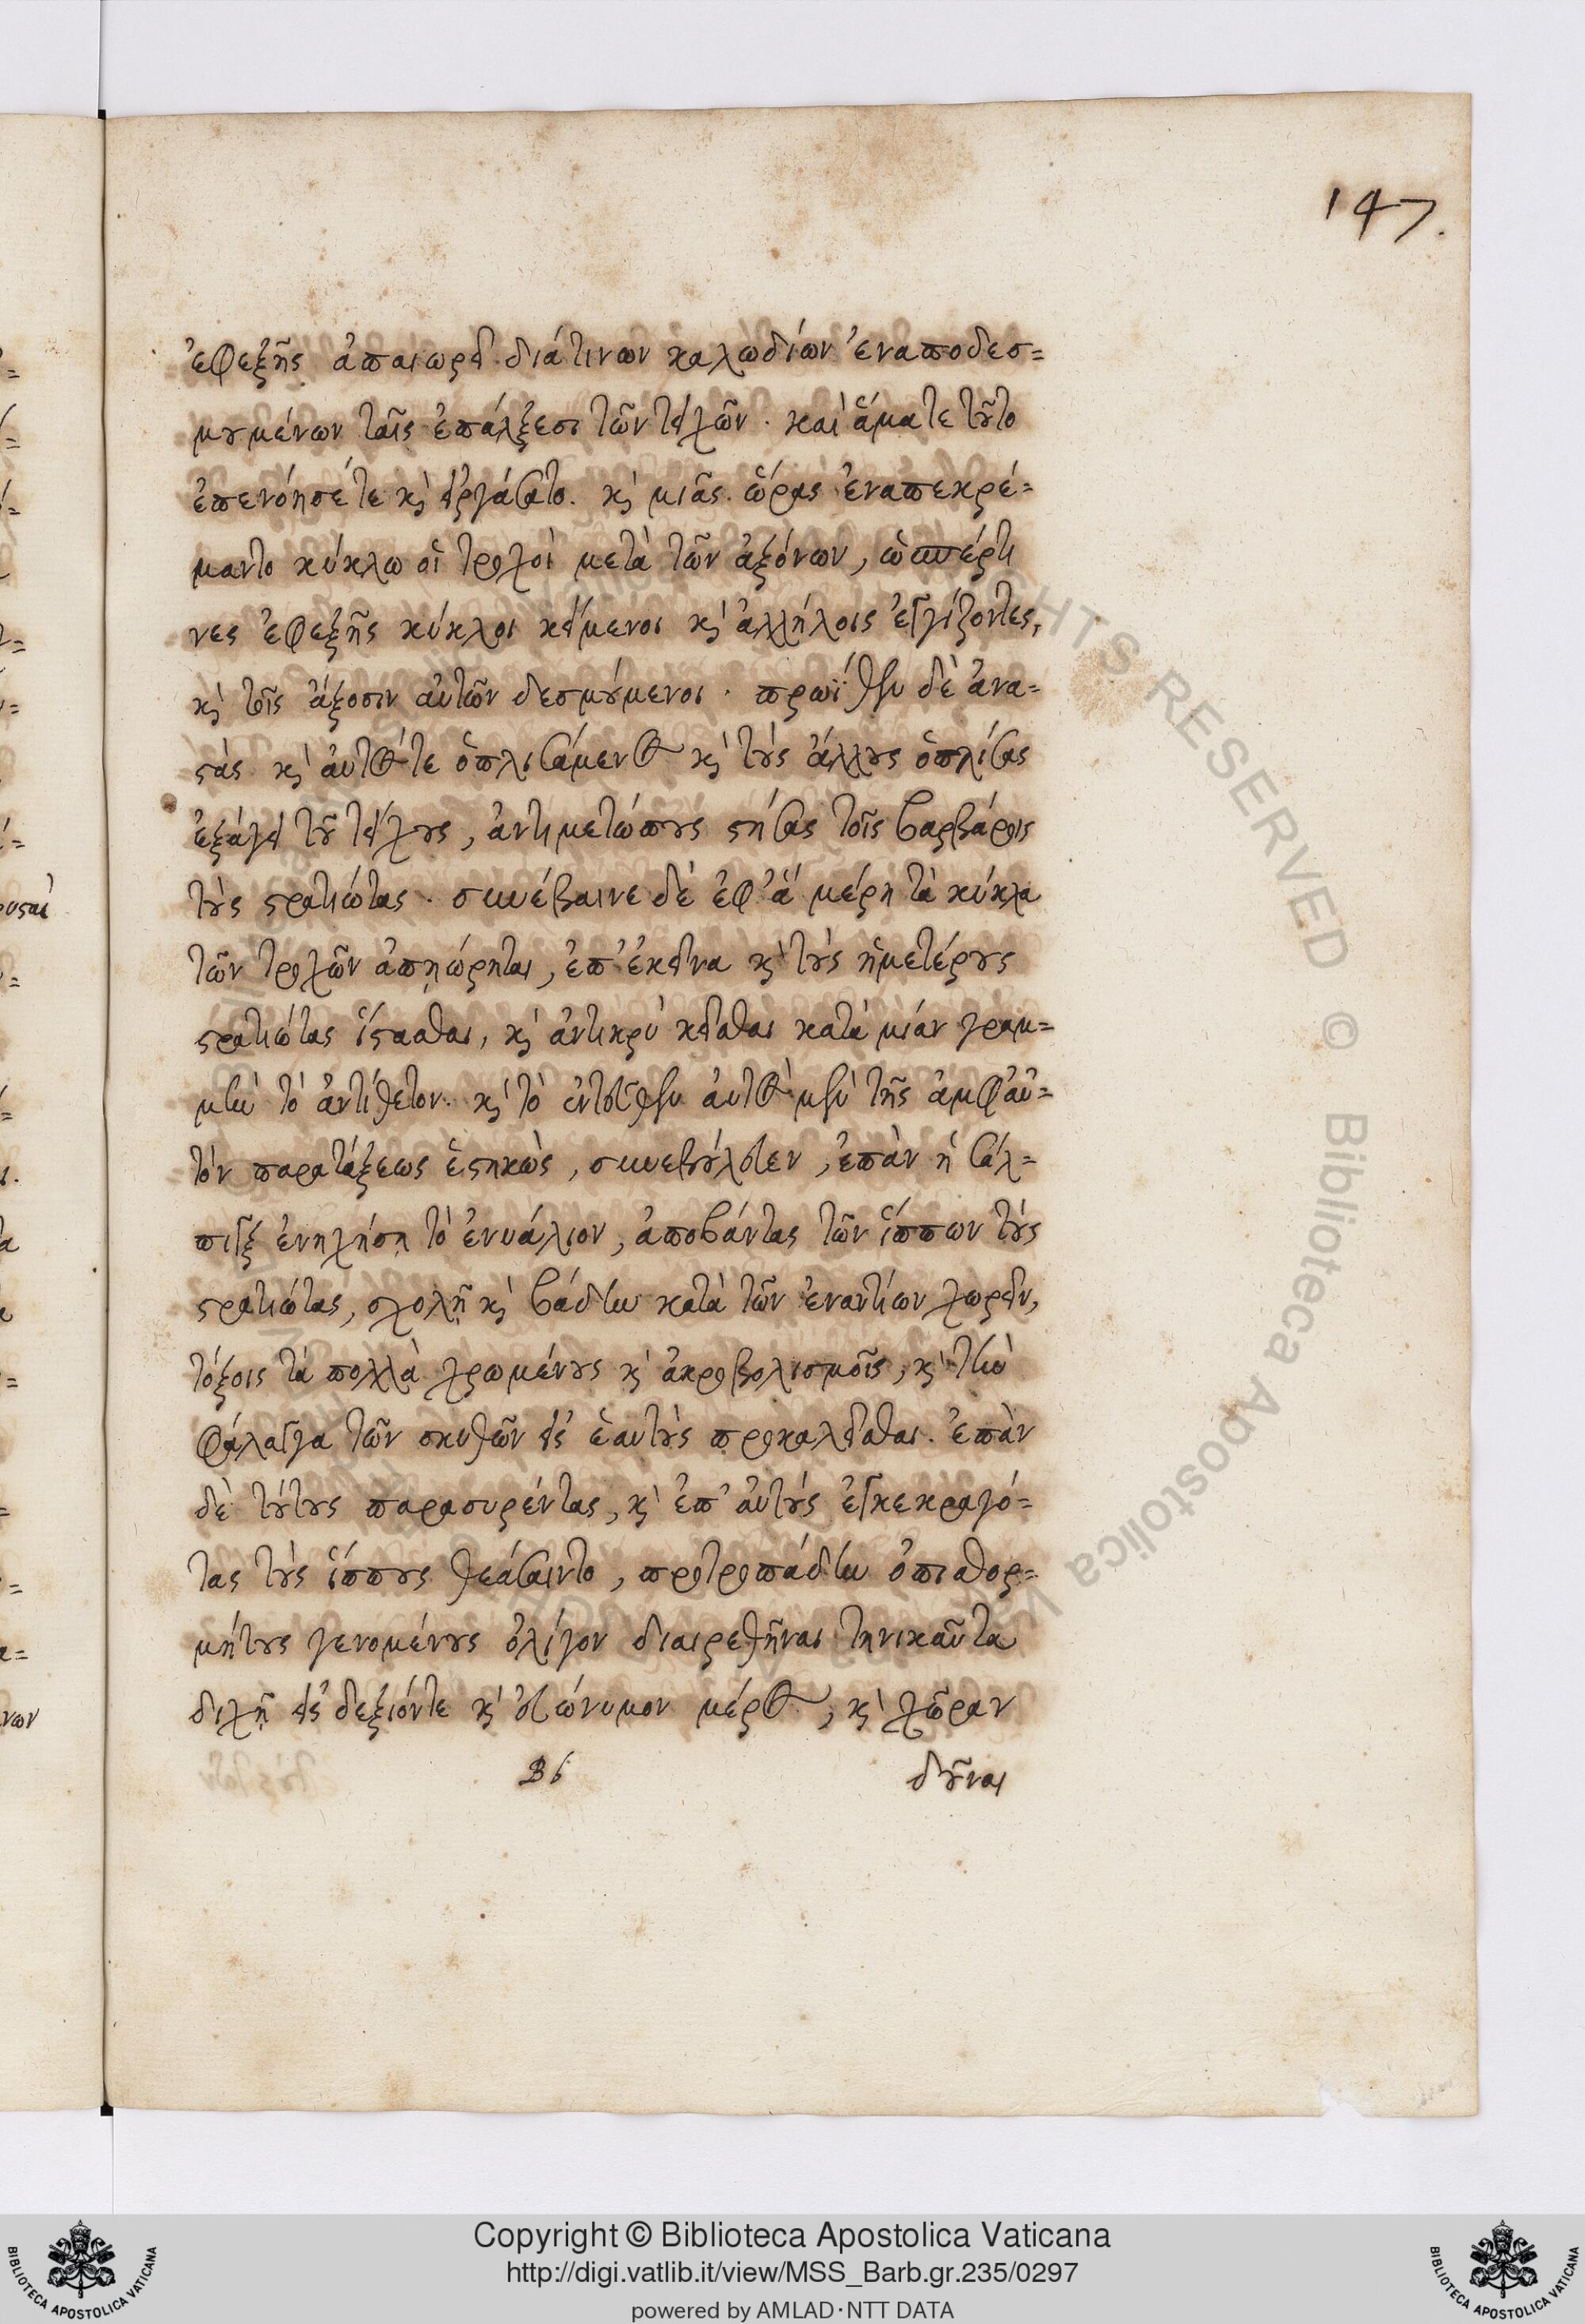 147.
ἐφεξῆς ἀπαιωρεῖ διάτινων καλωδίων ἐναποδεσ=
μουμένων ταῖς ἐπάλξεσι τῶν τειχῶν. καὶ ἅματε τοῦτο
ἐπενόησέτε καὶ εἰργάσατο. καὶ μιᾶς ὥρας ἐναπεκρέ=
μαντο κύκλω οἱ τροχοὶ μετὰ τῶν ἀξόνων, ὡσπέρτι
νες ἐφεξῆς κύκλοι κείμενοι καὶ ἀλλήλοις ἐγγίζοντες,
καὶ τοῖς ἄξοσιν αὐτῶν δεσμούμενοι. πρωΐθεν δὲ ἀνα=
στάς καὶ αὐτόςτε ὁπλισάμενος καὶ τοὺς ἄλλους ὁπλίσας
ἐξάγει τοῦ τείχους, ἀντιμετώπους στήσας τοῖς βαρβάροις
τοὺς στρατιώτας. συνέβαινε δὲ ἐφ' ἃ μέρη τὰ κύκλα
τῶν τροχῶν ἀπῃώρηται, ἐπ' ἐκεῖνα καὶ τοὺς ἡμετέρους
στρατιώτας ἵστασθαι, καὶ ἀντικρὺ κεῖσθαι κατὰ μίαν γραμ=
μὴν τὸ ἀντίθετον. καὶ τὸ ἐντεῦθεν αὐτὸς μὲν τῆς ἀμφ' αὐ=
τὸν παρατάξεως ἑστηκὼς, συνεβούλευεν, ἐπὰν ἡ σάλ=
πιγξ ἐνηχήσῃ τὸ ἐνυάλιον, ἀποβάντας τῶν ἵππων τοὺς
στρατιώτας, σχολῇ καὶ βάδην κατὰ τῶν ἐναντίων χωρεῖν,
τόξοις τὰ πολλὰ χρωμένους καὶ ἀκροβολισμοῖς, καὶ τὴν
φάλαγγα τῶν σκυθῶν εἰς ἑαυτοὺς προκαλεῖσθαι. ἐπὰν
δὲ τούτους παρασυρέντας, καὶ ἐπ' αὐτοὺς ἐγκεκραγό=
τας τοὺς ἵππους θεάσαιντο, προτροπάδην ὀπισθορ=
μήτους γενομένους ὀλίγον διαιρεθῆναι τηνικαῦτα
διχῇ εἰς δεξιόντε καὶ εὐώνυμον μέρος, καὶ χῶραν
δοῦναι
Copyright © Biblioteca Apostolica Vaticana
http://digi.vatlib.it/view/MSS_Barb.gr.235/0297
powered by AMLAD·NTT DATA